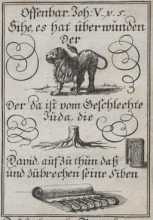 Offenbar. Joh. V. v. 5.
Sihe, es hat überwunden
Der
Der da ist vom Geschlechte
Juda, die
David, aufzuthun daß
und zubrechen seine Siben